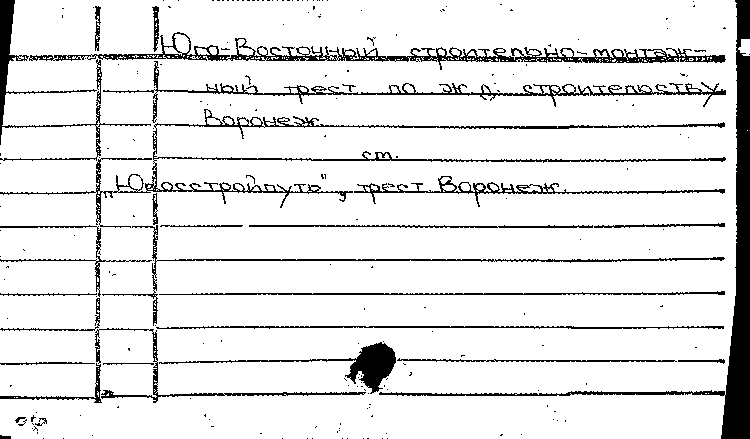 Юго-Восточный строительно-монтаж-
ный трест по ж.д. строительству
Воронеж.
ст.
„Югвосстройпуть", трест Воронеж.